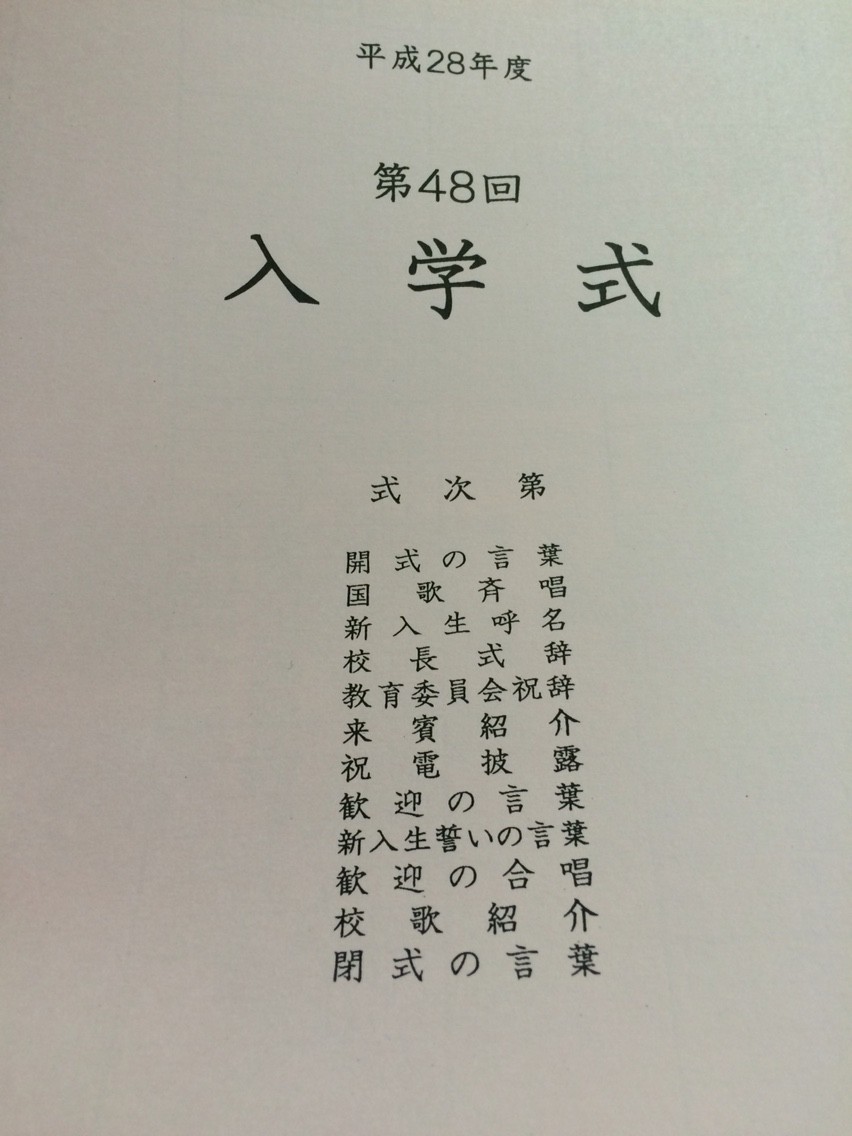 平成28年度
第48回
入学式
式次第
開式の言葉
国歌斉唱
新入生呼名
校長式辞
教育委員会祝辞
来賓紹介
祝電披露
歓迎の言葉
新入生誓いの言葉
歓迎の合唱
校歌紹介
閉式の言葉